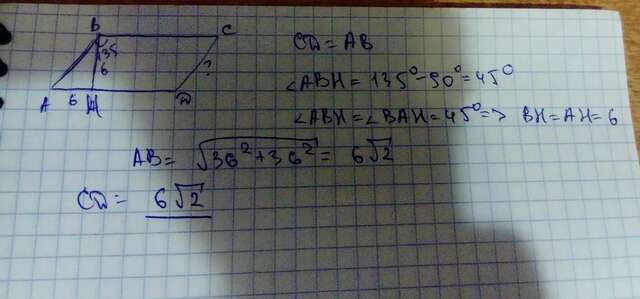 B C
135
6 ?
A 6 H D
CD = AB
∠ABH = 135° - 90° = 45°
∠ABH = ∠BAH = 45° => BH = AH = 6
AB = √36² + 36² = 6√2
CD = 6√2